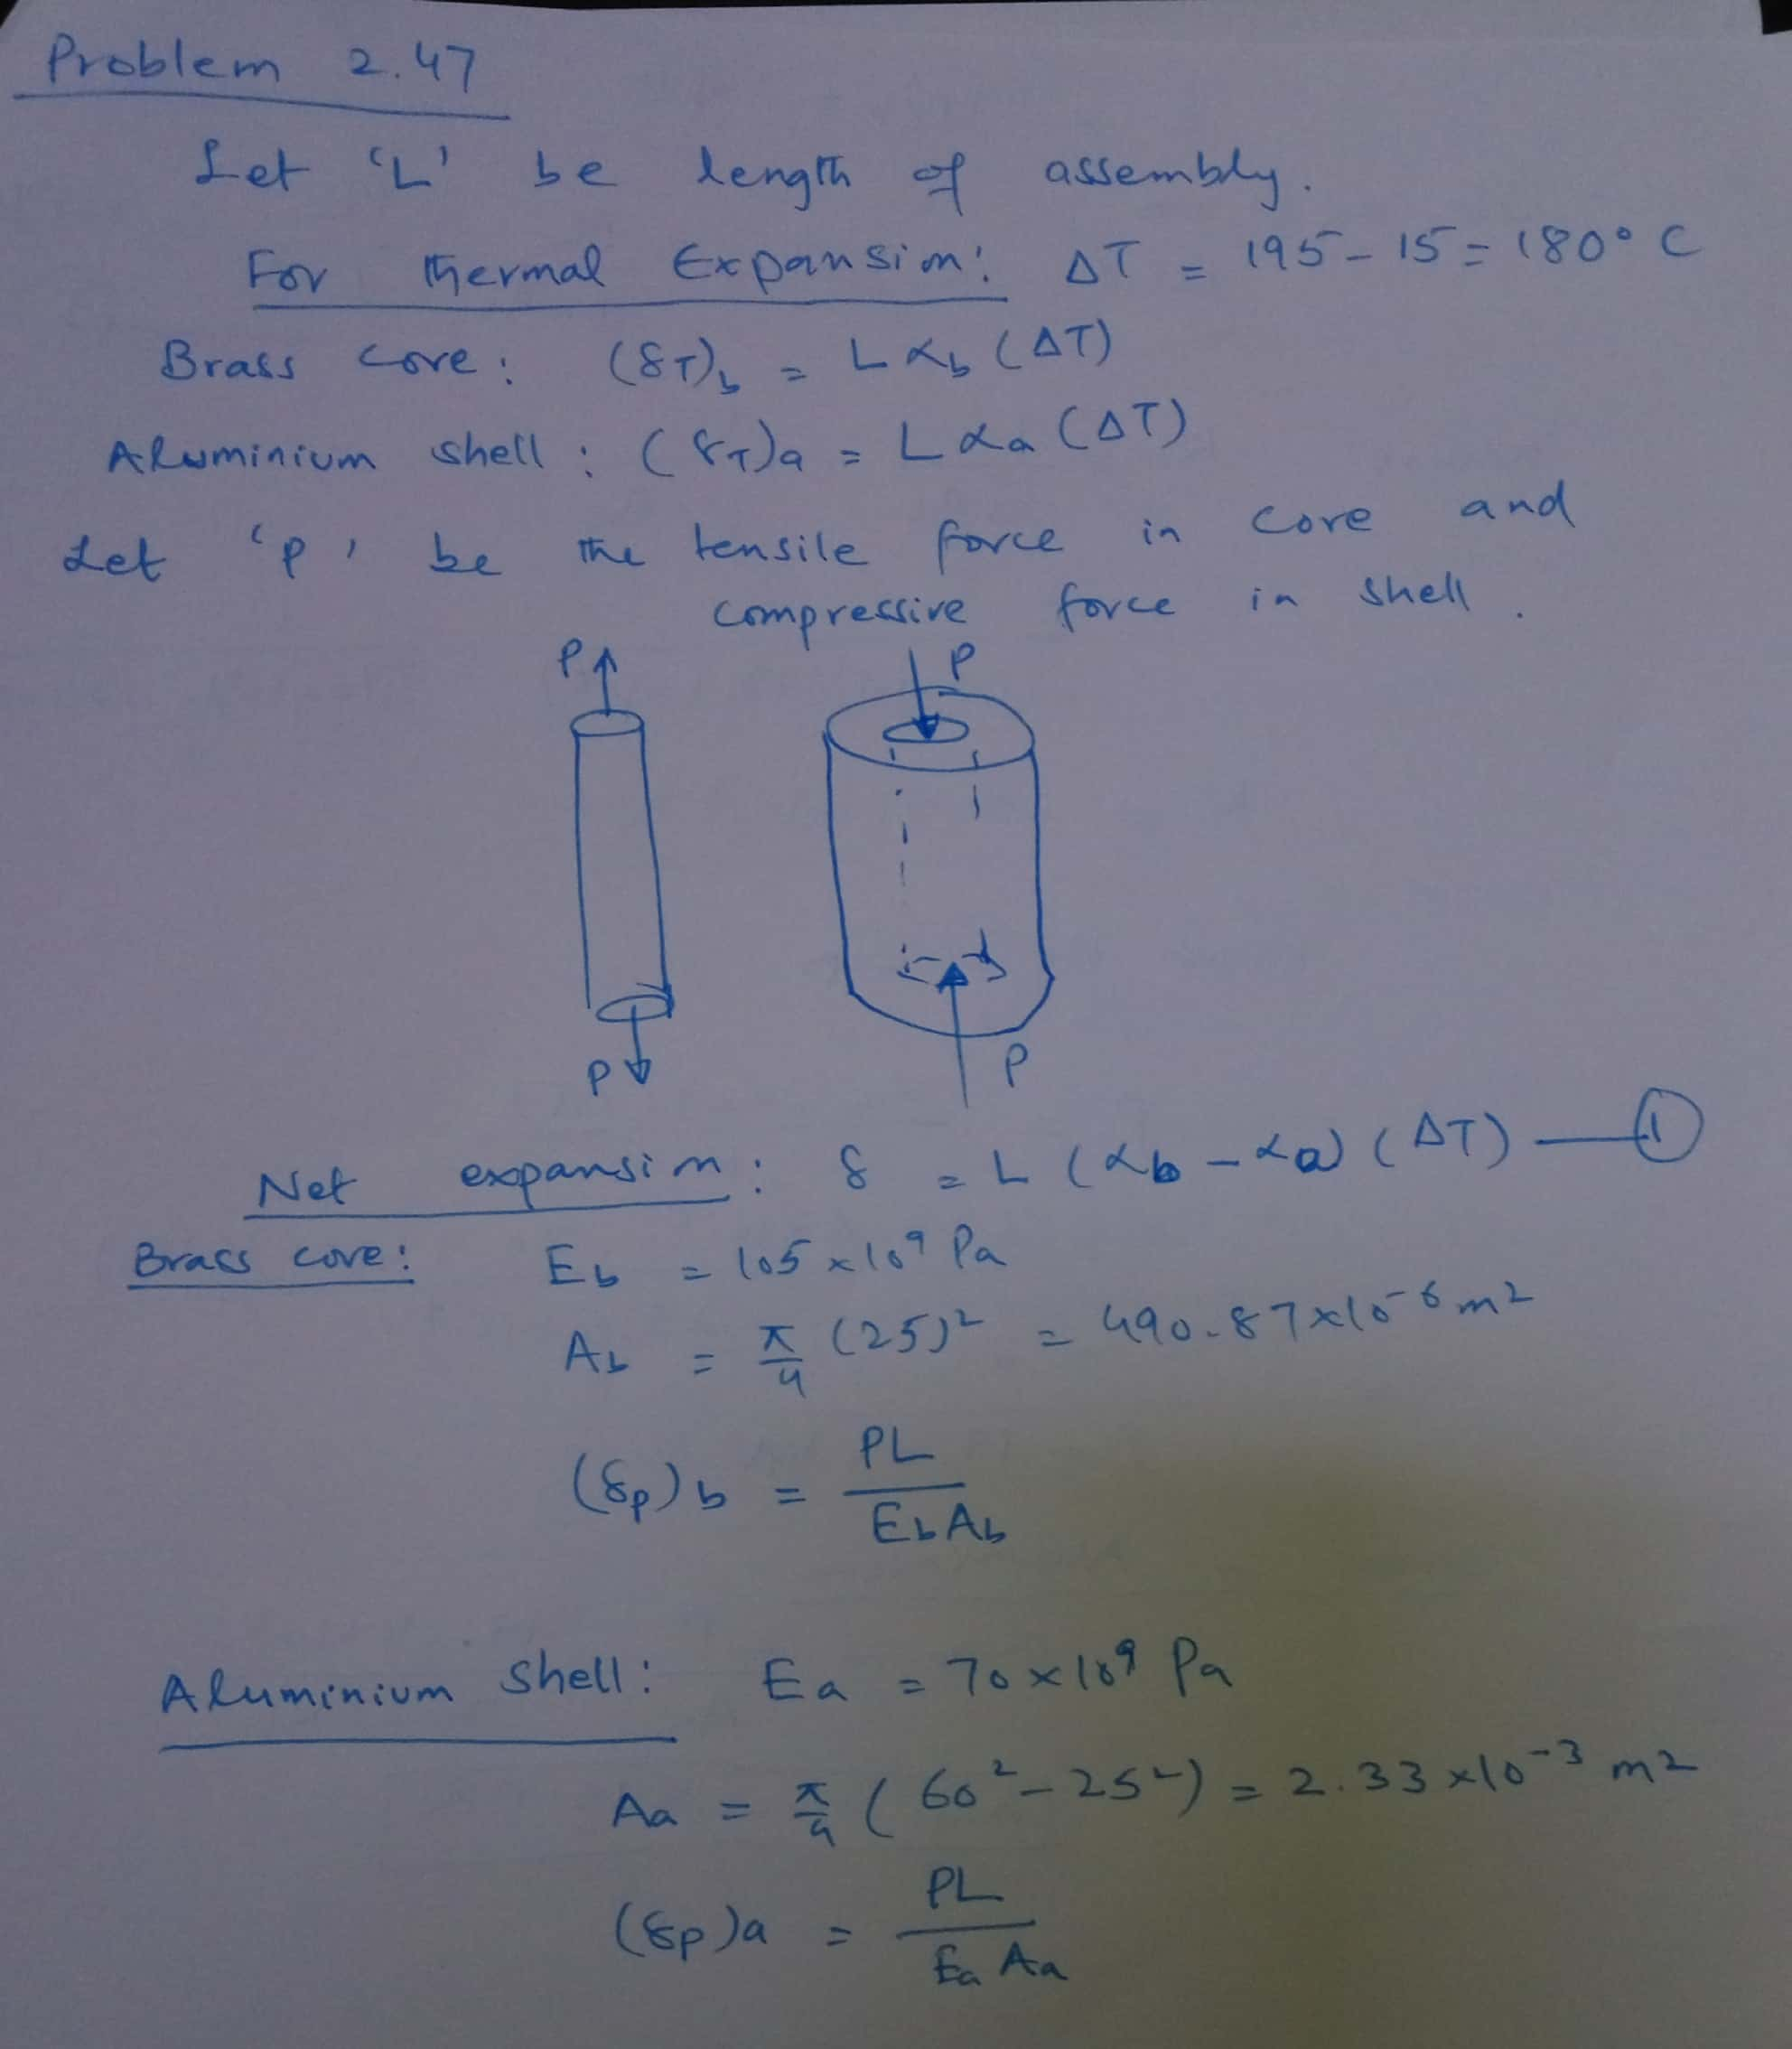 Problem 2.47
Let 'L' be length of assembly.
For thermal Expansion: ΔT = 195 - 15 = 180° C
Brass core: (δT)b = L αb (ΔT)
Aluminium shell: (δT)a = L αa (ΔT)
Let 'p' be the tensile force in core and
compressive force in shell.
P P
P P
Net expansion: δ = L (αb - αa) (ΔT) — ①
Brass core: Eb = 105 x 10⁹ Pa
Ab = π/4 (25)² = 490.87 x 10⁻⁶ m²
(δp)b = PL / Eb Ab
Aluminium shell: Ea = 70 x 10⁹ Pa
Aa = π/4 (60² - 25²) = 2.33 x 10⁻³ m²
(δp)a = PL / Ea Aa